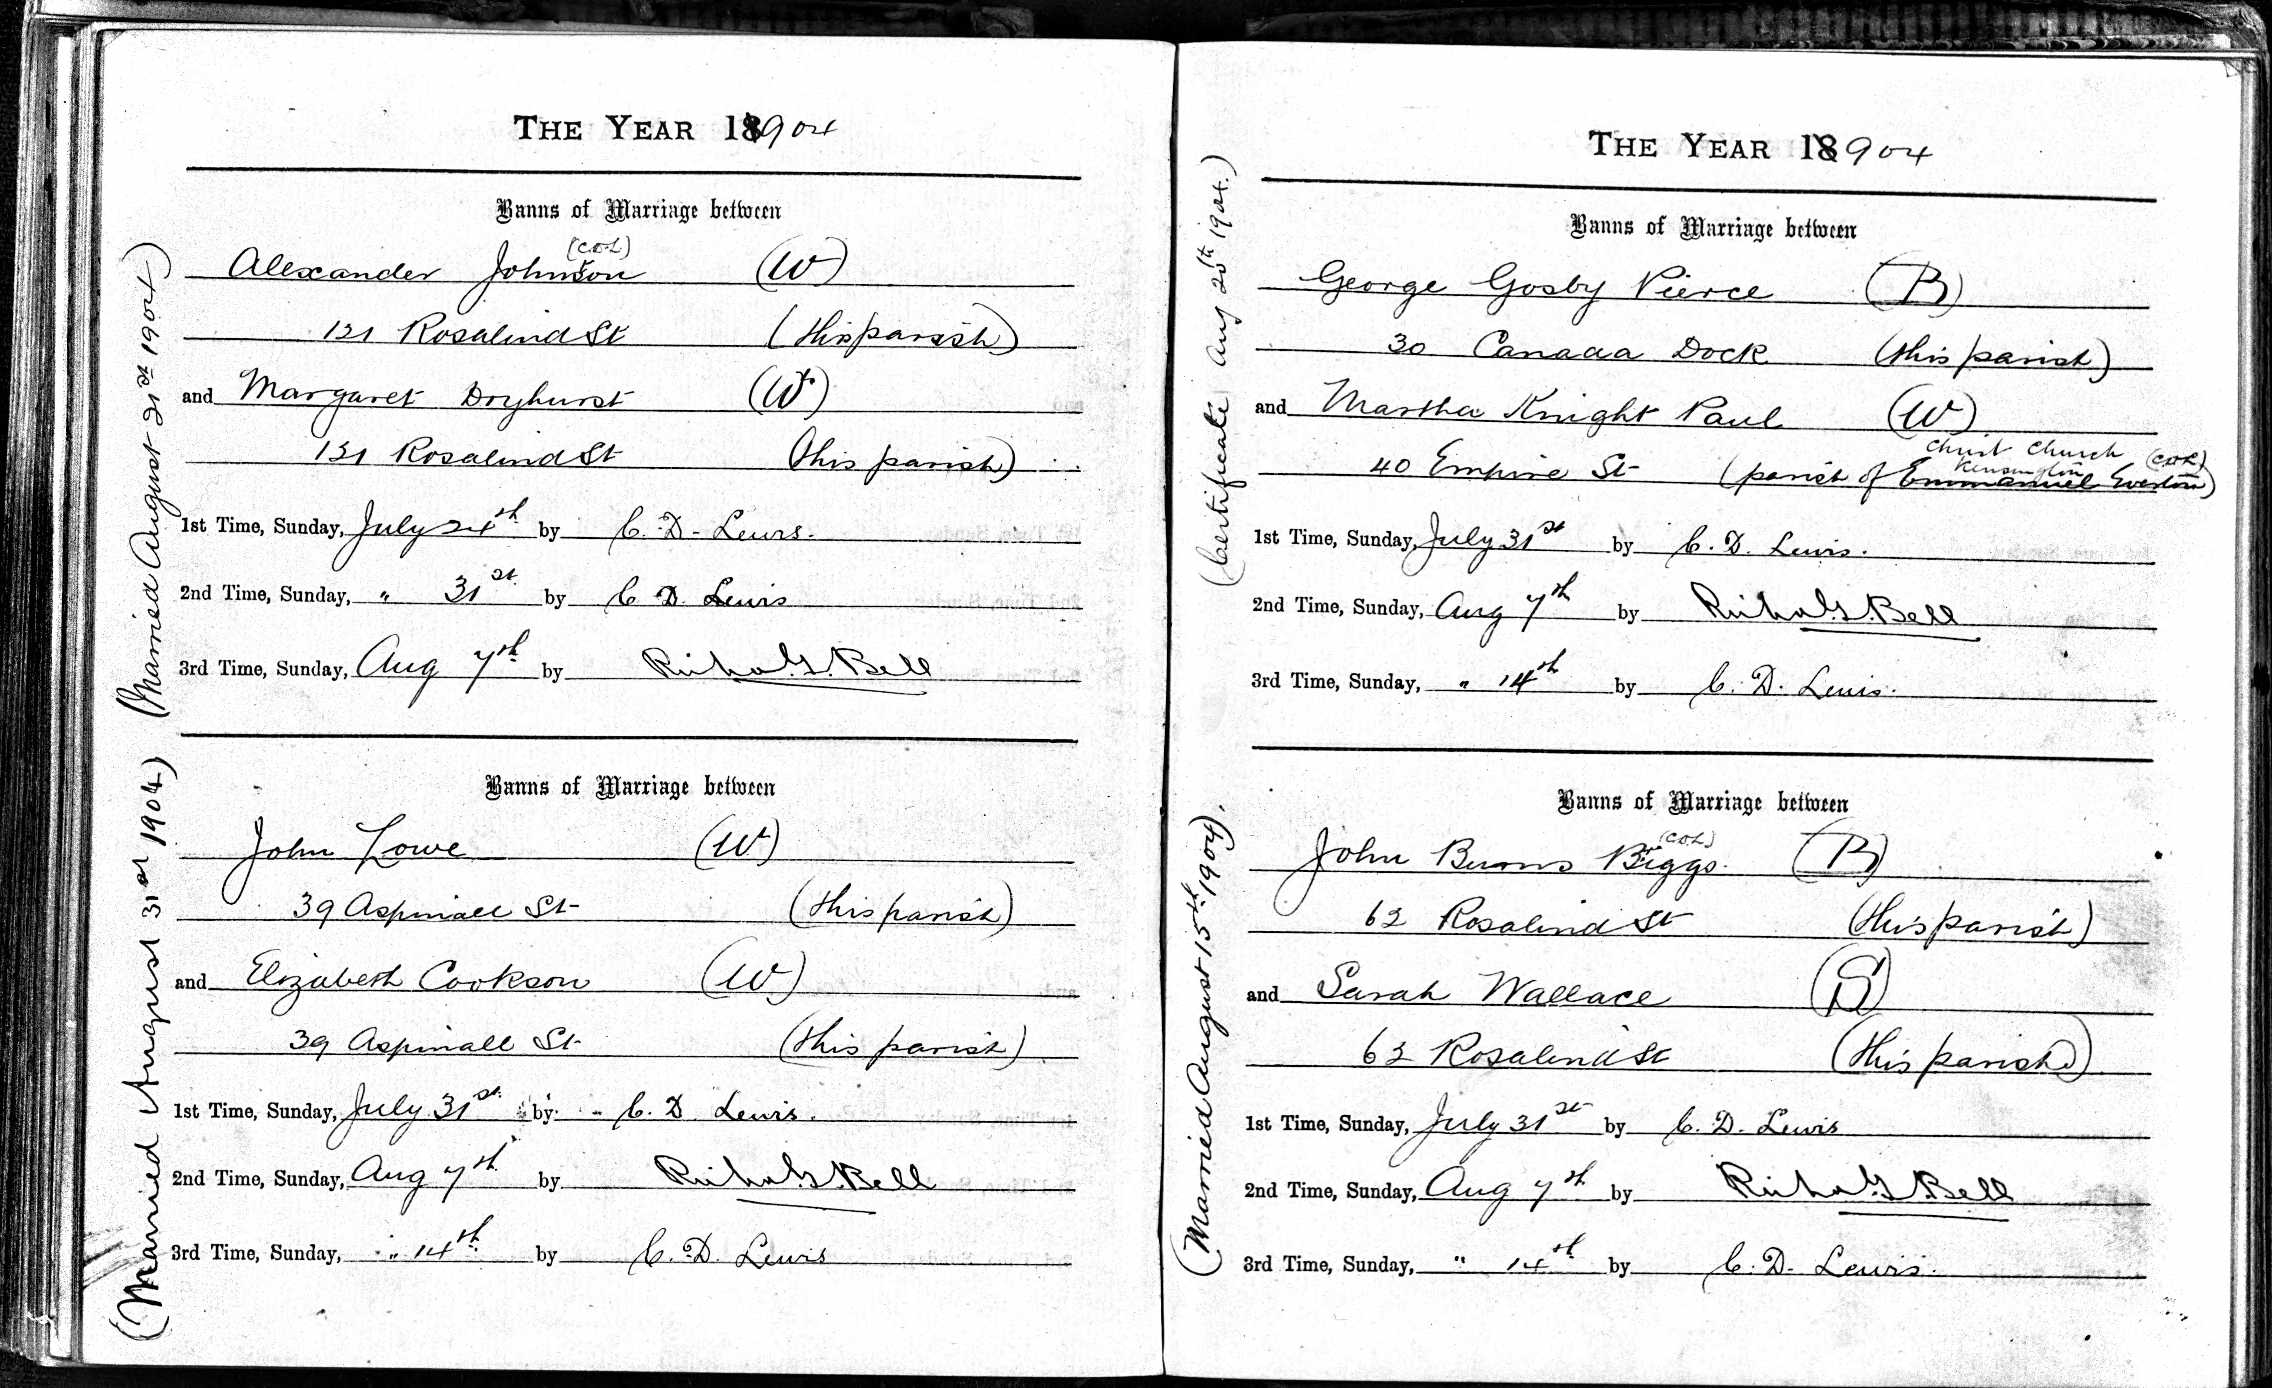 THE YEAR 18904
Banns of Marriage between
(C.D.L)
Alexander Johnson (W)
121 Rosalind St (this parish)
and Margaret Dryhurst (W)
121 Rosalind St (this parish)
1st Time, Sunday, July 24th by C. D. Lewis.
2nd Time, Sunday, " 31st by C D. Lewis
3rd Time, Sunday, Aug 7th by Richd. G. Bell
(Married August 21st 1904)
Banns of Marriage between
John Lowe (W)
39 Aspinall St (this parish)
and Elizabeth Cookson (W)
39 Aspinall St (this parish)
1st Time, Sunday, July 31st by C. D. Lewis.
2nd Time, Sunday, Aug 7th by Richd. G. Bell
3rd Time, Sunday, " 14th by C. D. Lewis
(Married August 31st 1904)
THE YEAR 18904
Banns of Marriage between
George Gosby Pierce (B)
30 Canada Dock (this parish)
and Martha Knight Paul (W)
Christ Church (C.D.L)
Kensington
40 Empire St (parish of Emmanuel Everton)
1st Time, Sunday, July 31st by C. D. Lewis.
2nd Time, Sunday, Aug 7th by Richd. G. Bell
3rd Time, Sunday, " 14th by C. D. Lewis.
(Certificate Aug 20th 1904.)
Banns of Marriage between
(C.D.L)
John Burns Biggs. (B)
62 Rosalind St (this parish)
and Sarah Wallace (S)
62 Rosalind St (this parish)
1st Time, Sunday, July 31st by C. D. Lewis
2nd Time, Sunday, Aug 7th by Richd. G. Bell
3rd Time, Sunday, " 14th by C. D. Lewis.
(Married August 15th 1904).